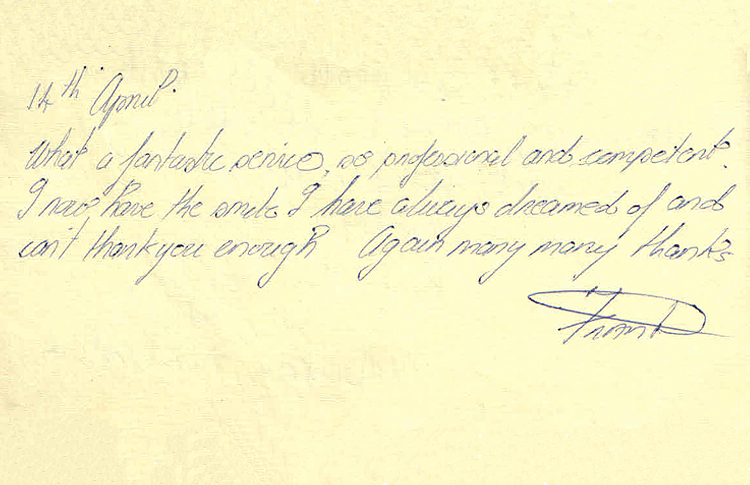 14th April.
What a fantastic service, so professional and competent.
I now have the smile I have always dreamed of and
can't thank you enough Again many many thanks
From D